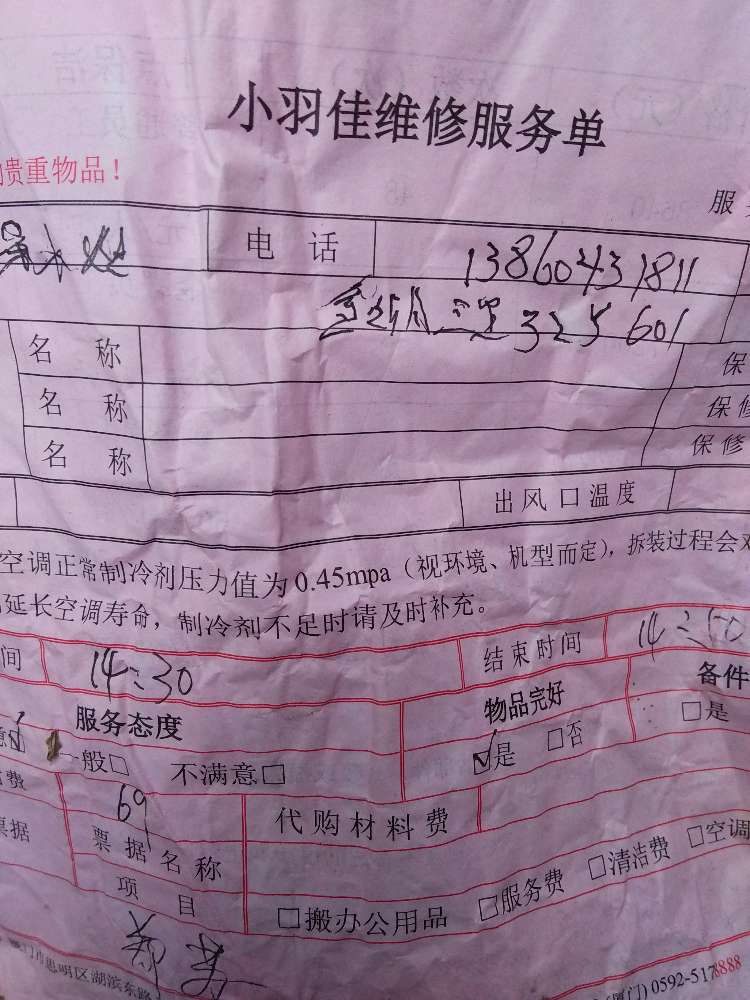 小羽佳维修服务单
贵重物品！
服
电 话 13860431811
325 601
名 称 保
名 称 保修
名 称 保修
出风口温度
空调正常制冷剂压力值为0.45mpa（视环境、机型而定），拆装过程会对
延长空调寿命，制冷剂不足时请及时补充。
间 14:30 结束时间 14:50
服务态度 物品完好 备件
意☑ 一般□ 不满意□ ☑是 □否 □是
费 69 代购材料费
票据 票据名称
项 目 □搬办公用品 □服务费 □清洁费 □空调
门市思明区湖滨东路 (厦门) 0592-5178888